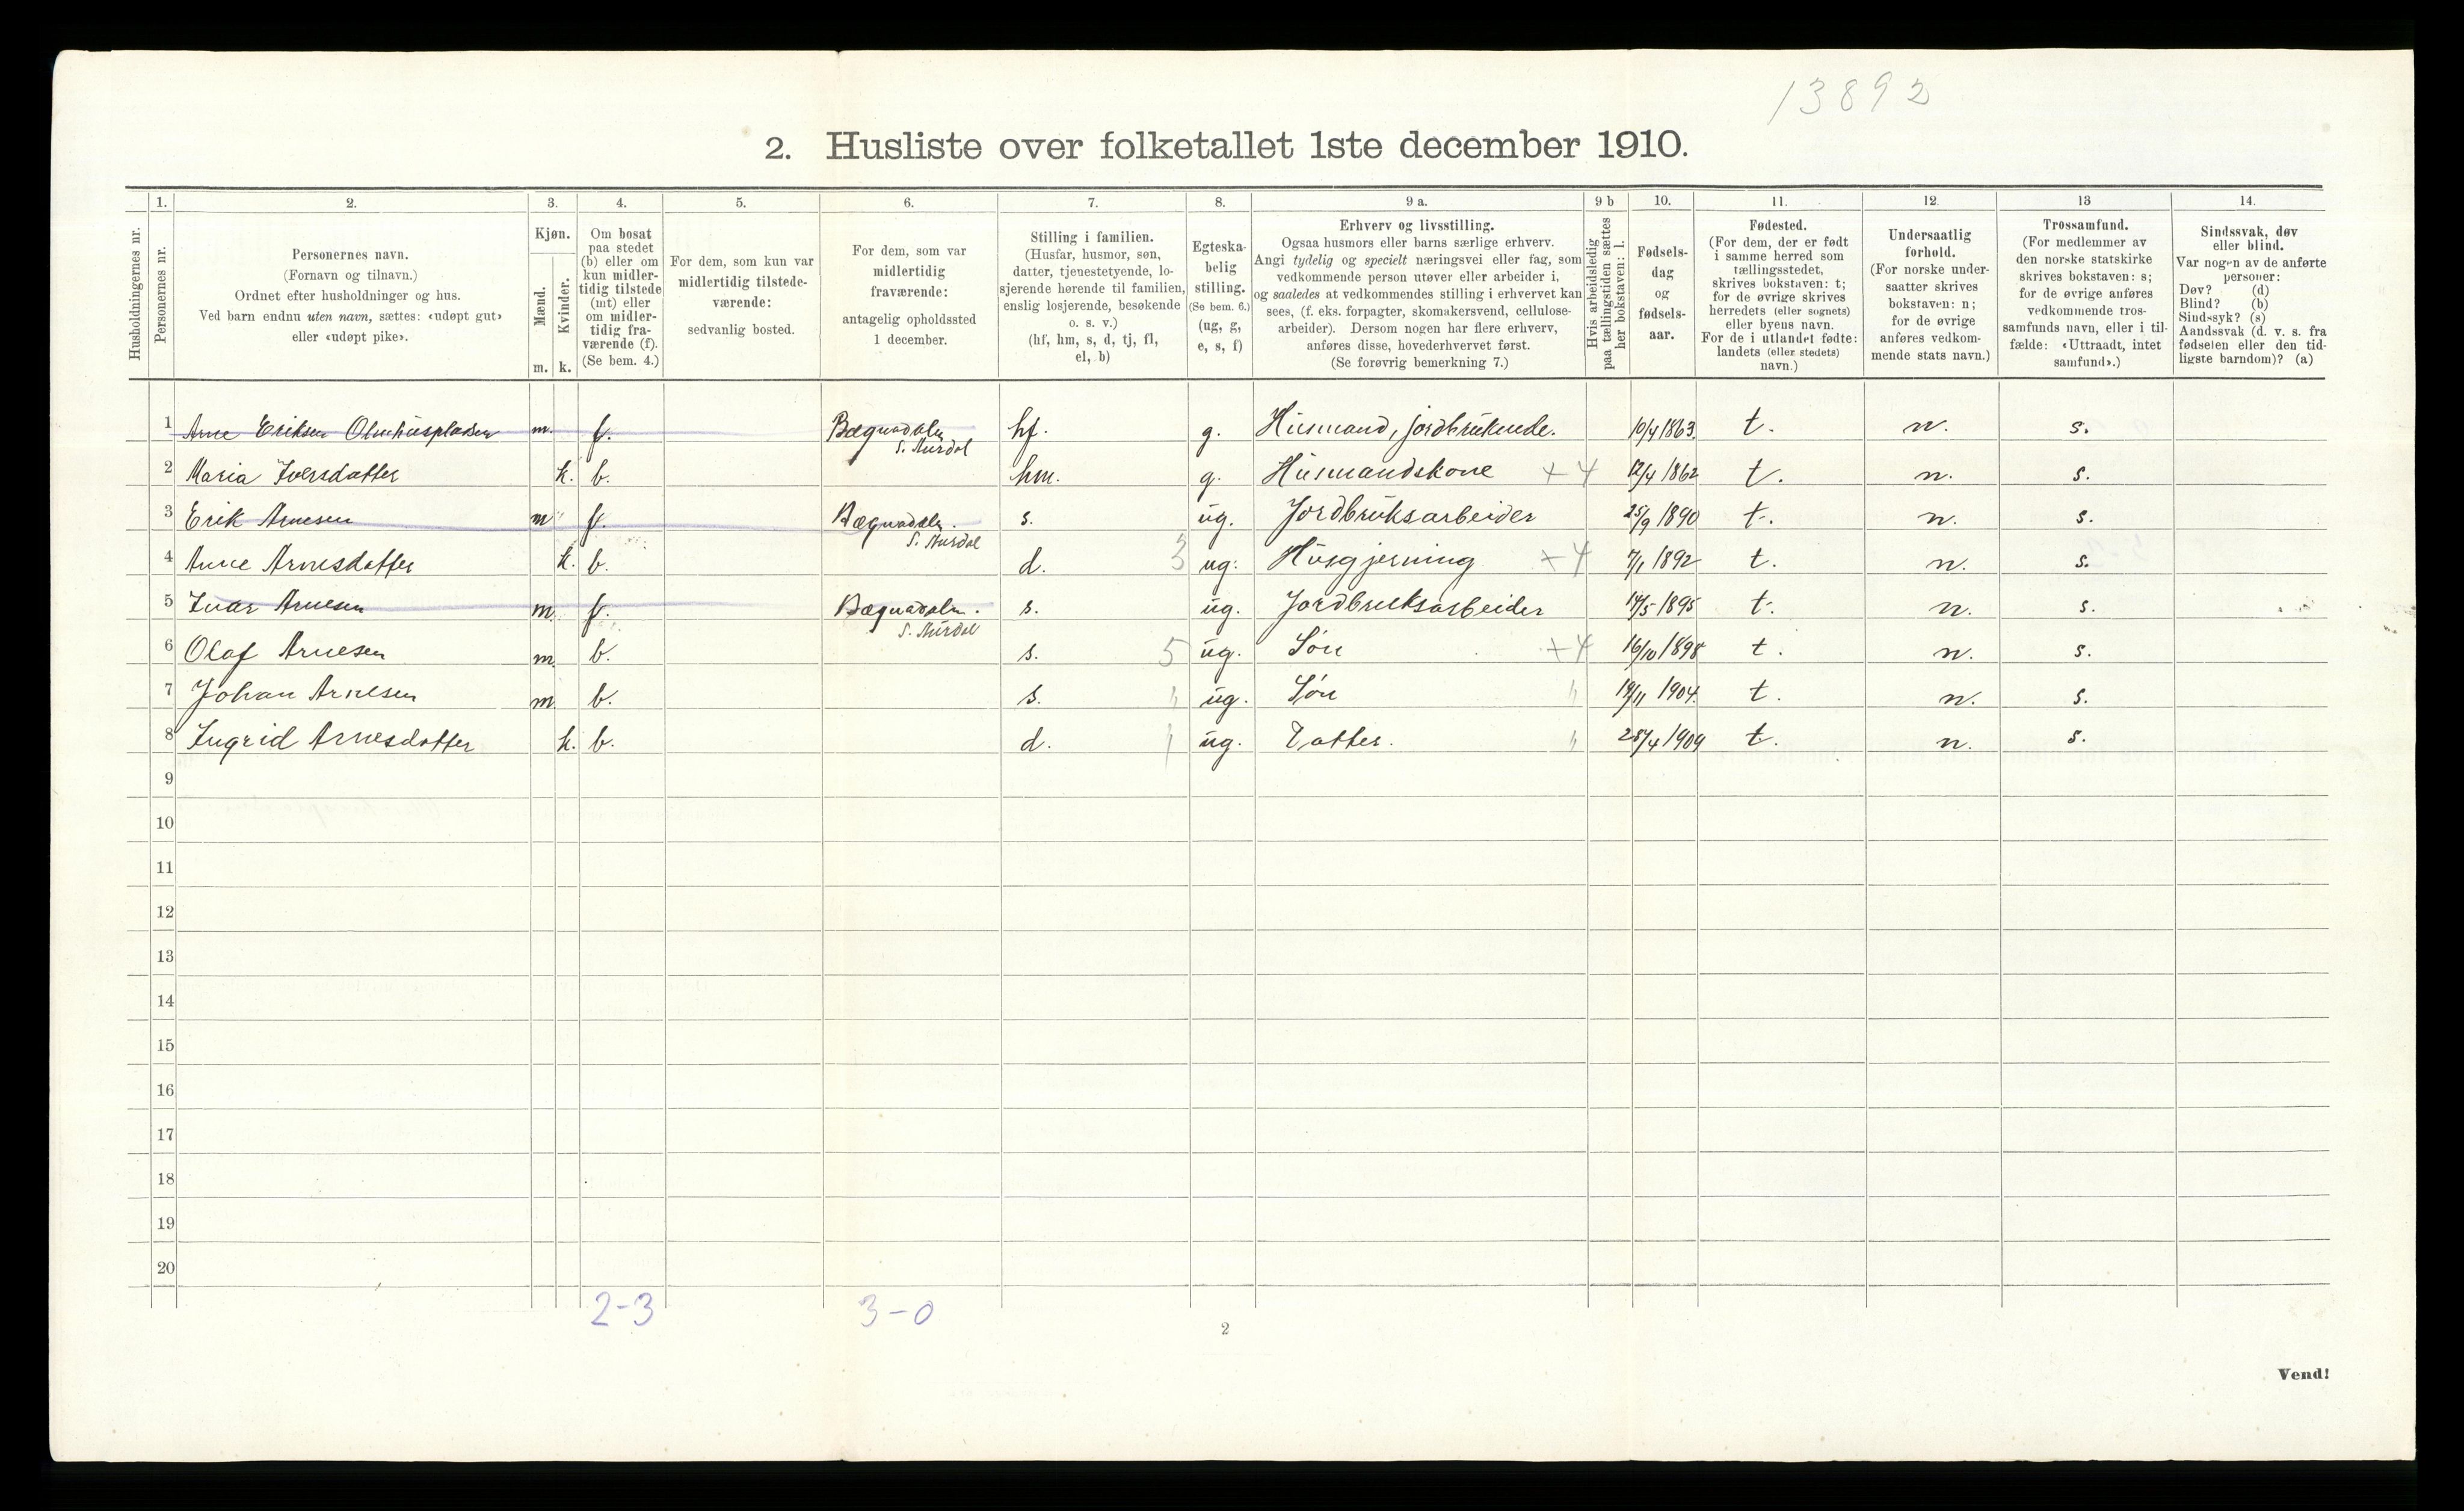 13892
2. Husliste over folketallet 1ste december 1910.
Husholdningernes nr.
1. Personernes nr.
2. Personernes navn. (Fornavn og tilnavn.) Ordnet efter husholdninger og hus. Ved barn endnu uten navn, sættes: «udøpt gut» eller «udøpt pike».
3. Kjøn. Mænd. m. Kvinder. k.
4. Om bosat paa stedet (b) eller om kun midlertidig tilstede (mt) eller om midlertidig fraværende (f). (Se bem. 4.)
5. For dem, som kun var midlertidig tilstedeværende: sedvanlig bosted.
6. For dem, som var midlertidig fraværende: antagelig opholdssted 1 december.
7. Stilling i familien. (Husfar, husmor, søn, datter, tjenestetyende, losjerende hørende til familien, enslig losjerende, besøkende o. s. v.) (hf, hm, s, d, tj, fl, el, b)
8. Egteskabelig stilling. (Se bem. 6.) (ug, g, e, s, f)
9 a. Erhverv og livsstilling. Ogsaa husmors eller barns særlige erhverv. Angi tydelig og specielt næringsvei eller fag, som vedkommende person utøver eller arbeider i, og saaledes at vedkommendes stilling i erhvervet kan sees, (f. eks. forpagter, skomakersvend, cellulosearbeider). Dersom nogen har flere erhverv, anføres disse, hovederhvervet først. (Se forøvrig bemerkning 7.)
9 b Hvis arbeidsledig paa tællingstiden sættes her bokstaven: l.
10. Fødselsdag og fødselsaar.
11. Fødested. (For dem, der er født i samme herred som tællingsstedet, skrives bokstaven: t; for de øvrige skrives herredets (eller sognets) eller byens navn. For de i utlandet fødte: landets (eller stedets) navn.)
12. Undersaatlig forhold. (For norske undersaatter skrives bokstaven: n; for de øvrige anføres vedkommende stats navn.)
13 Trossamfund. (For medlemmer av den norske statskirke skrives bokstaven: s; for de øvrige anføres vedkommende trossamfunds navn, eller i tilfælde: «Uttraadt, intet samfund».)
14. Sindssvak, døv eller blind. Var nogen av de anførte personer: Døv? (d) Blind? (b) Sindssyk? (s) Aandssvak (d. v. s. fra fødselen eller den tidligste barndom)? (a)
1 Arne Eriksen Olmhuspladsen m. f. Bægnadalen S. Aurdal hf. g. Husmand, jordbrukende. 10/4 1863. t. n. s.
2 Maria Iversdatter k. b. hm. g. Husmandskone +4 12/4 1862 t. n. s.
3 Erik Arnesen m f. Bægnadalen. S. Aurdal s. ug. Jordbruksarbeider 25/9 1890 t. n. s.
4 Anne Arnesdatter k. b. d. 3 ug. Husgjerning +4 7/1 1892 t. n. s.
5 Ivar Arnesen m. f. Bægnadalen. S. Aurdal s. ug. Jordbruksarbeider 14/5 1895 t. n. s.
6 Olaf Arnesen m. b. s. 5 ug. Søn +4 16/10 1898 t. n. s.
7 Johan Arnesen m. b. s. ug. Søn 19/11 1904. t. n. s.
8 Ingrid Arnesdatter k. b. d. ug. Datter. 25/4 1909 t. n. s.
9
10
11
12
13
14
15
16
17
18
19
20
2-3 3-0
2
Vend!